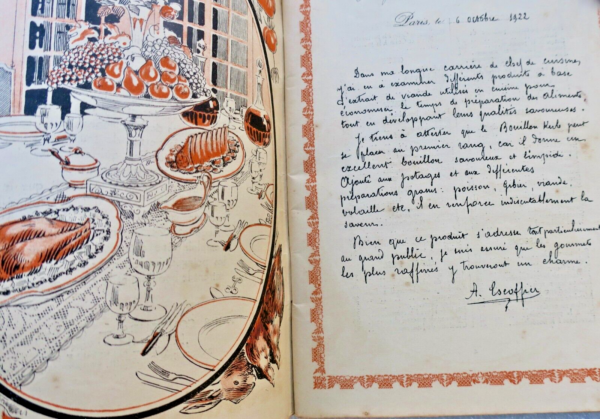 Paris, le 6 octobre 1922
Dans ma longue carrière de chef de cuisine,
j'ai eu à examiner différents produits à base
d'extrait de viande utilisés en cuisine pour
économiser le temps de préparation des aliments,
tout en développant leurs qualités savoureuses.
Je tiens à attester que le Bouillon Kub peut
se placer au premier rang, car il donne un
excellent bouillon savoureux et limpide.
Ajouté aux potages et aux différentes
préparations grasses: poisson, gibier, viande,
volailles etc, il en renforce indiscutablement la
saveur.
Bien que ce produit s'adresse tout particulièrement
au grand public, je suis assuré que les gourmets
les plus raffinés y trouveront un charme.
A. Escoffier